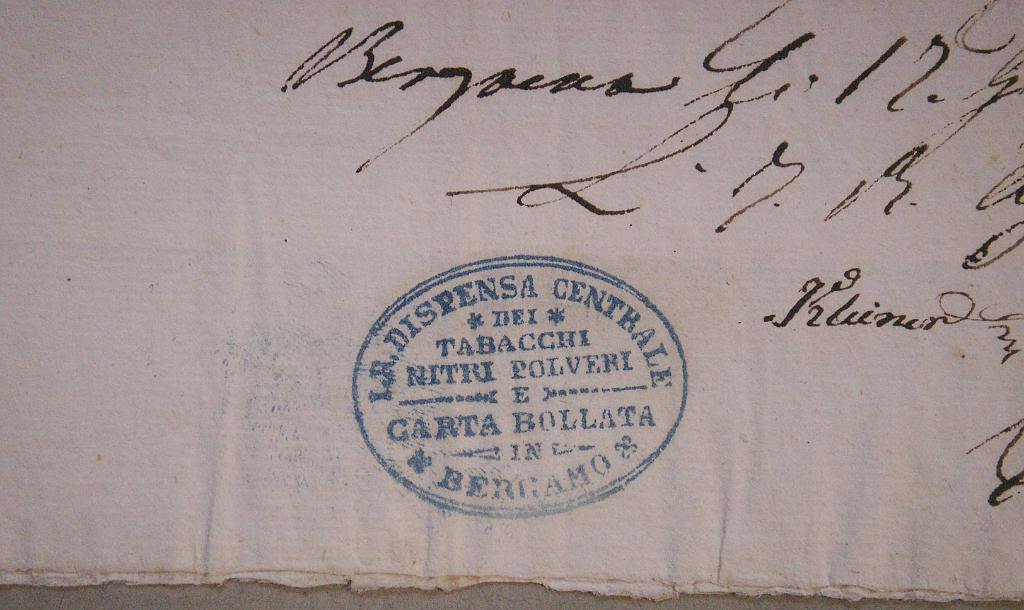 Bergamo li 17.
L. I. R.
I.R. DISPENSA CENTRALE
* DEI *
TABACCHI
NITRI POLVERI
E
CARTA BOLLATA
IN
BERGAMO